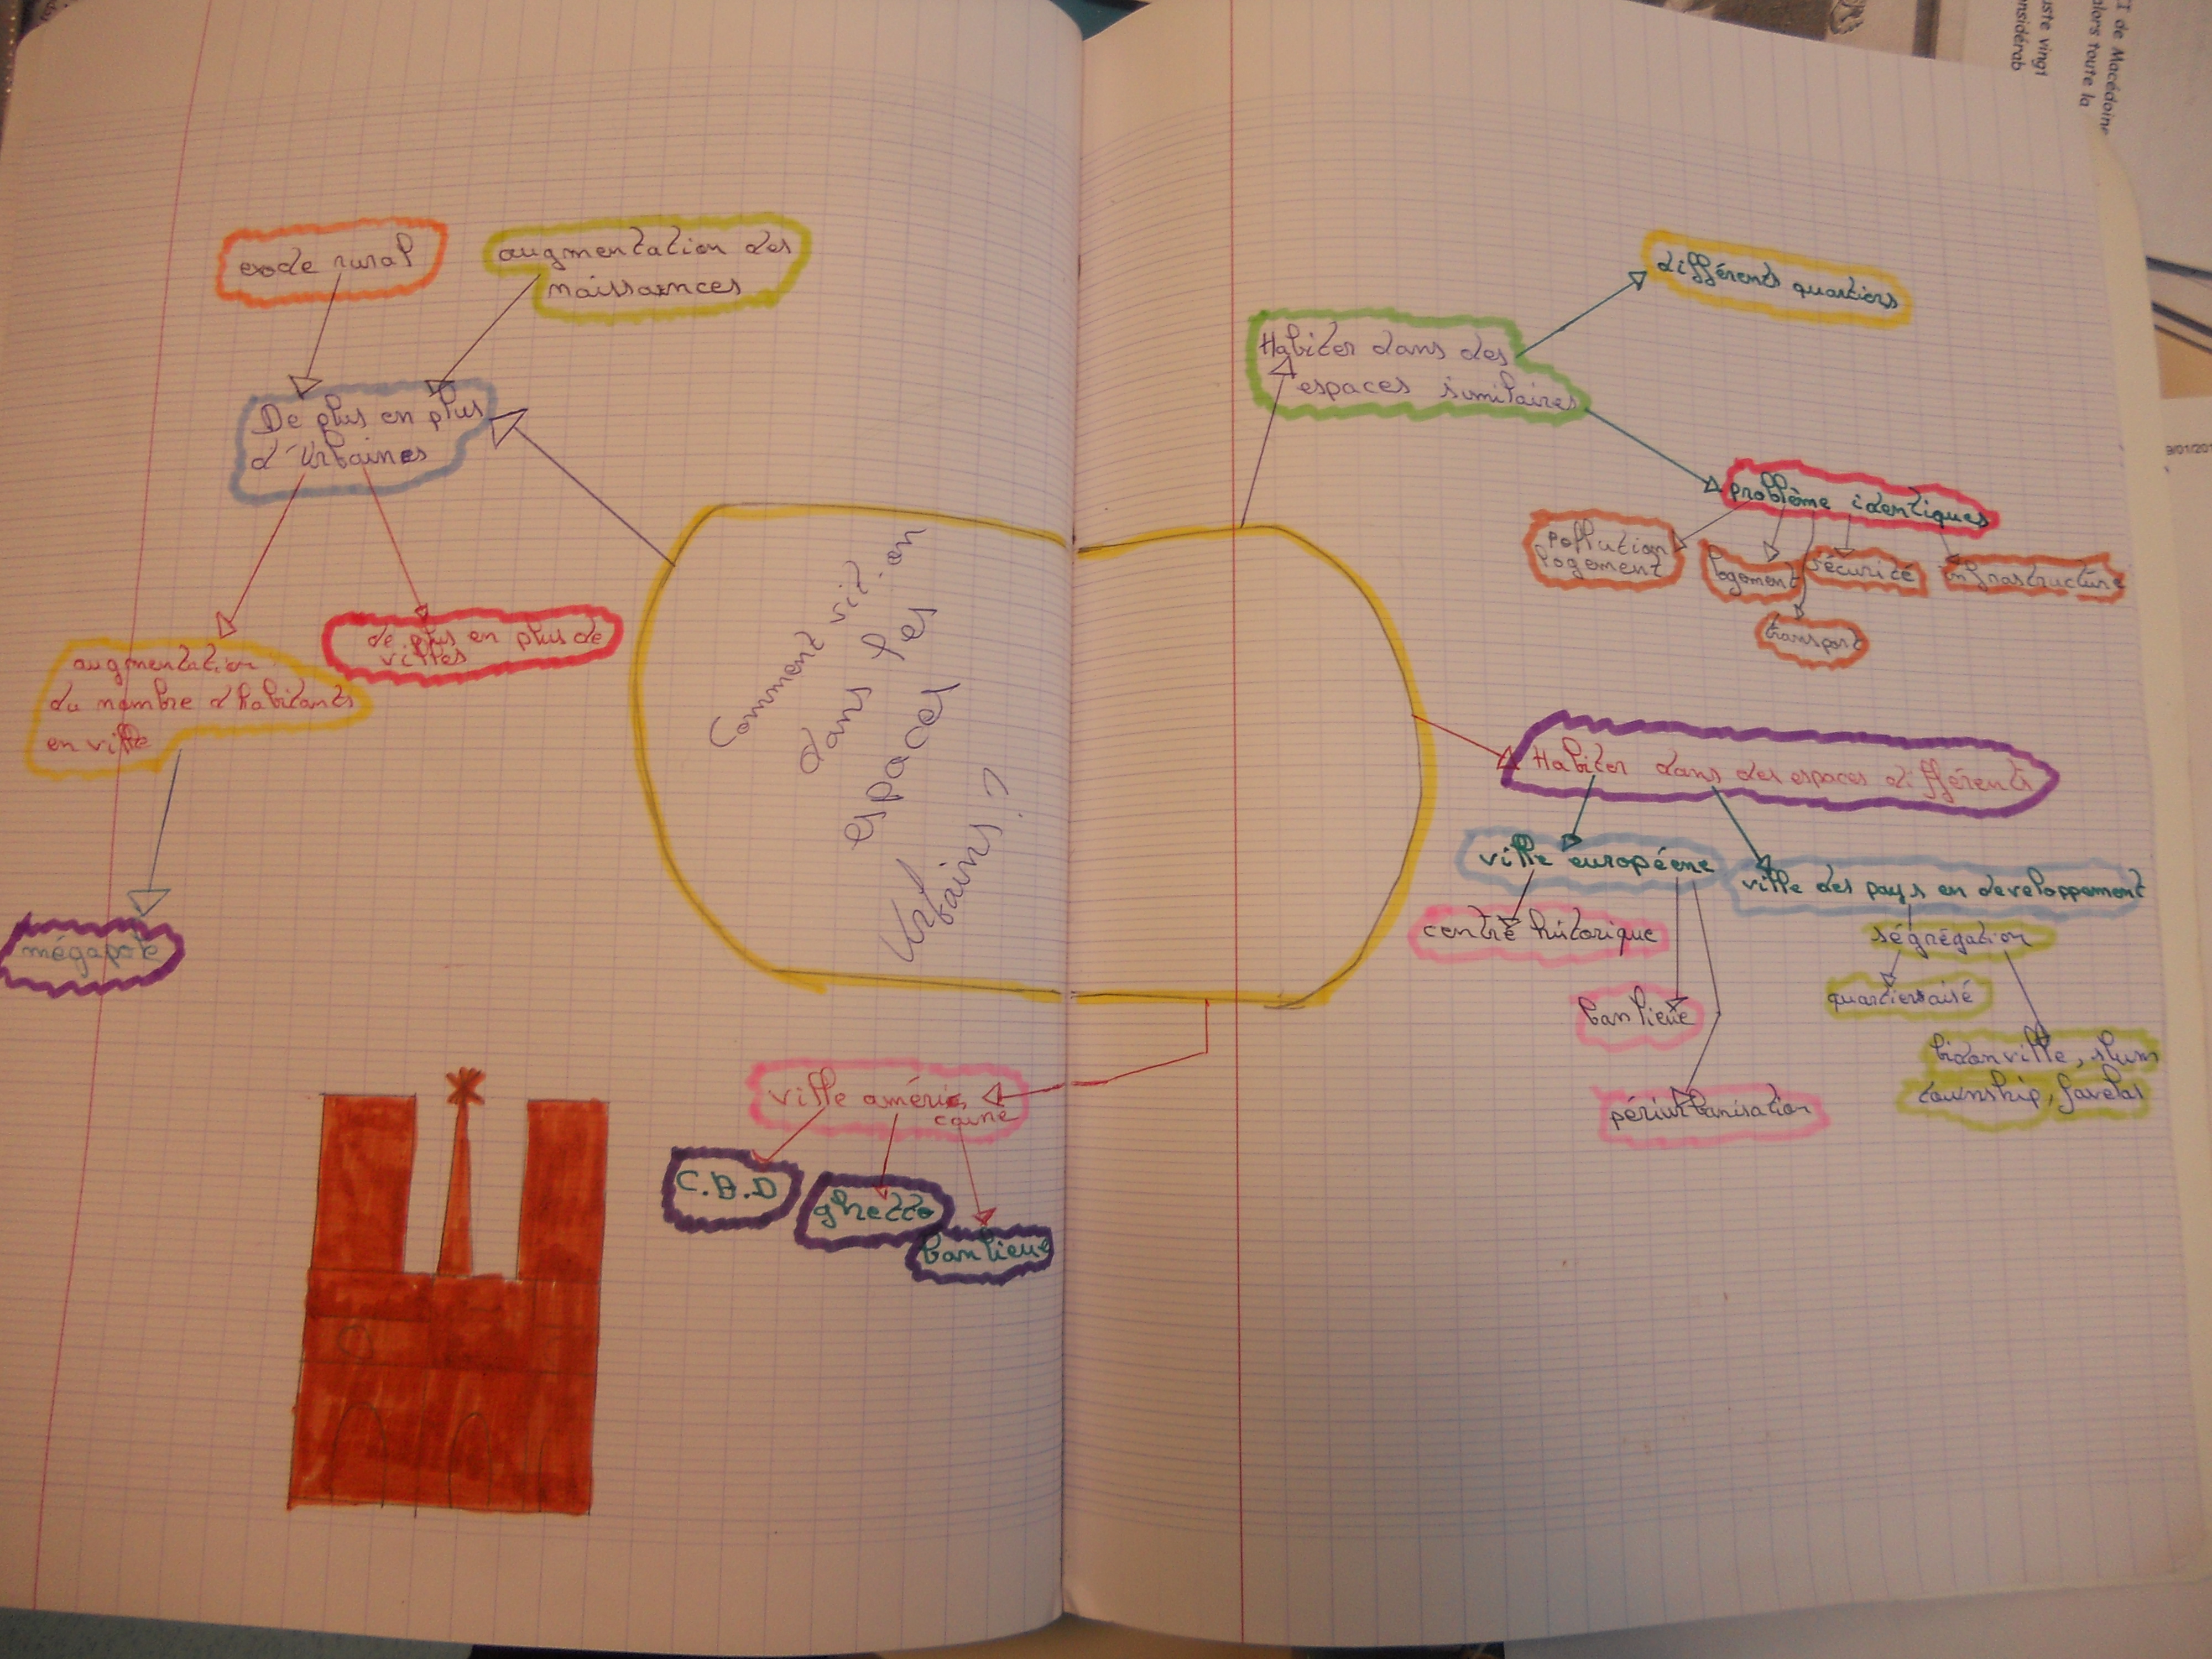 exode rural
augmentation des
naissances
De plus en plus
d'Urbaines
augmentation
du nombre d'habitants
en ville
de plus en plus de
villes
mégapole
Comment vit-on
dans les
espaces
Urbains ?
ville améri
caine
C.B.D
ghetto
banlieue
Habiter dans des
espaces similaires
différents quartiers
problème identiques
pollution
logement
logement
sécurité
infrastructure
transport
Habiter dans des espaces différents
ville européene
ville des pays en developpement
centre historique
banlieue
périurbanisation
ségrégation
quartiersaisé
bidonville, slum
township, favelas
CI de Macédoine
alors toute la
uste vingt
onsidérab
9/01/201